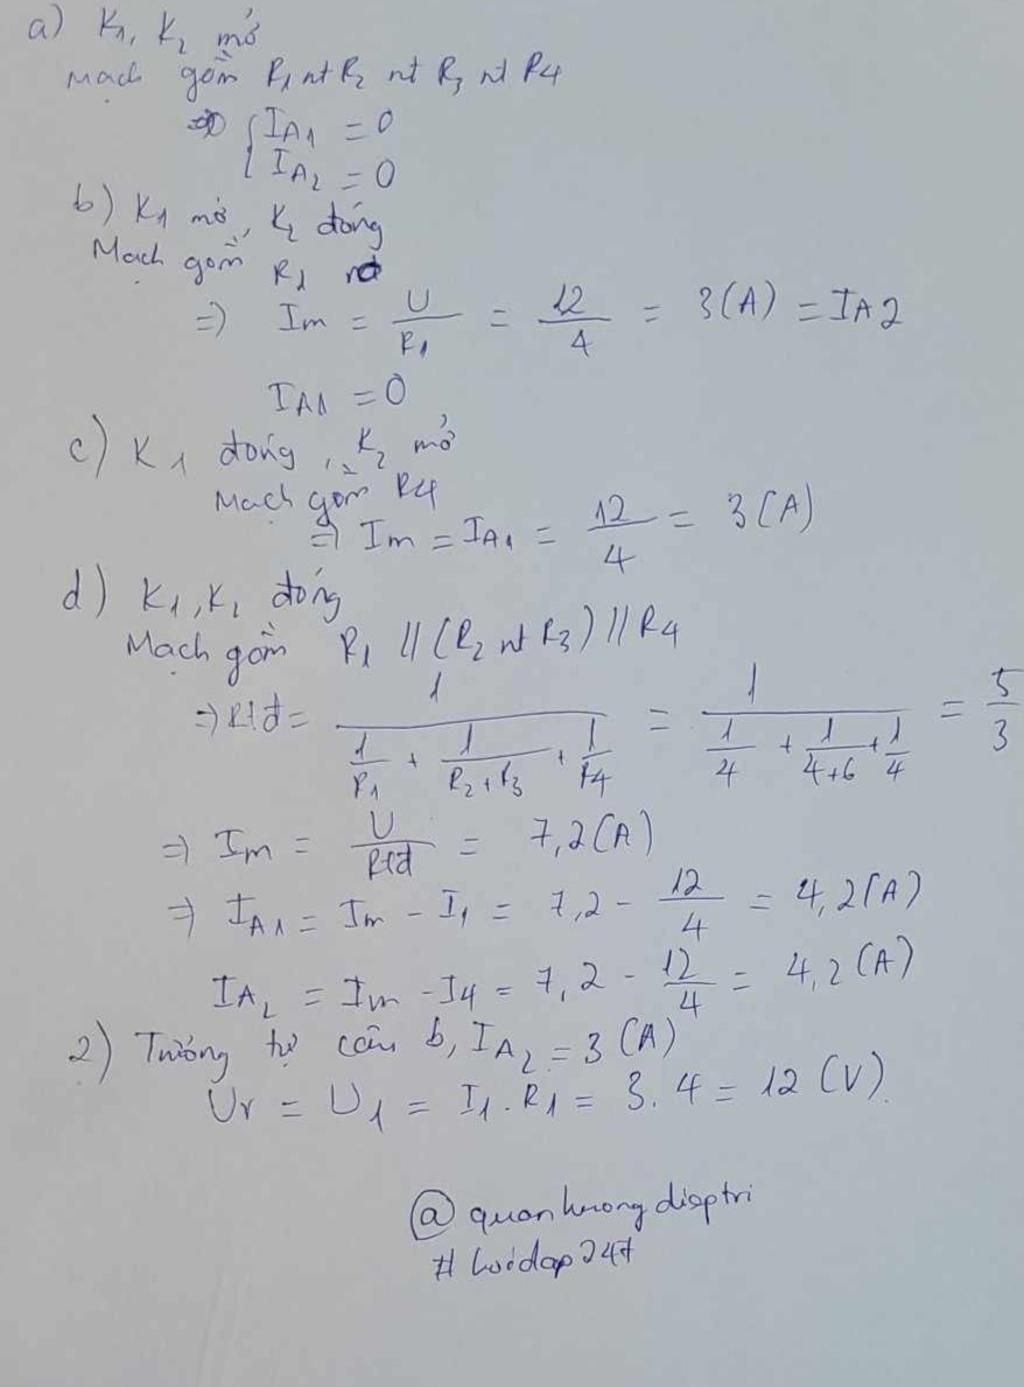 a) K1, K2 mở
Mạch gồm R1 nt R2 nt R3 nt R4
=> { IA1 = 0
IA2 = 0
b) K1 mở, K2 đóng
Mạch gồm R1
=> Im = U/R1 = 12/4 = 3(A) = IA2
IA1 = 0
c) K1 đóng, K2 mở
Mạch gồm R4
=> Im = IA1 = 12/4 = 3(A)
d) K1, K2 đóng
Mạch gồm R1 // (R2 nt R3) // R4
=> Rtđ = 1/(1/R1 + 1/(R2+R3) + 1/R4) = 1/(1/4 + 1/(4+6) + 1/4) = 5/3
=> Im = U/Rtđ = 7,2(A)
=> IA1 = Im - I1 = 7,2 - 12/4 = 4,2(A)
IA2 = Im - I4 = 7,2 - 12/4 = 4,2(A)
2) Tương tự câu b, IA2 = 3(A)
Uv = U1 = I1.R1 = 3.4 = 12(V).
@quankuongdieptri
#hoidap247